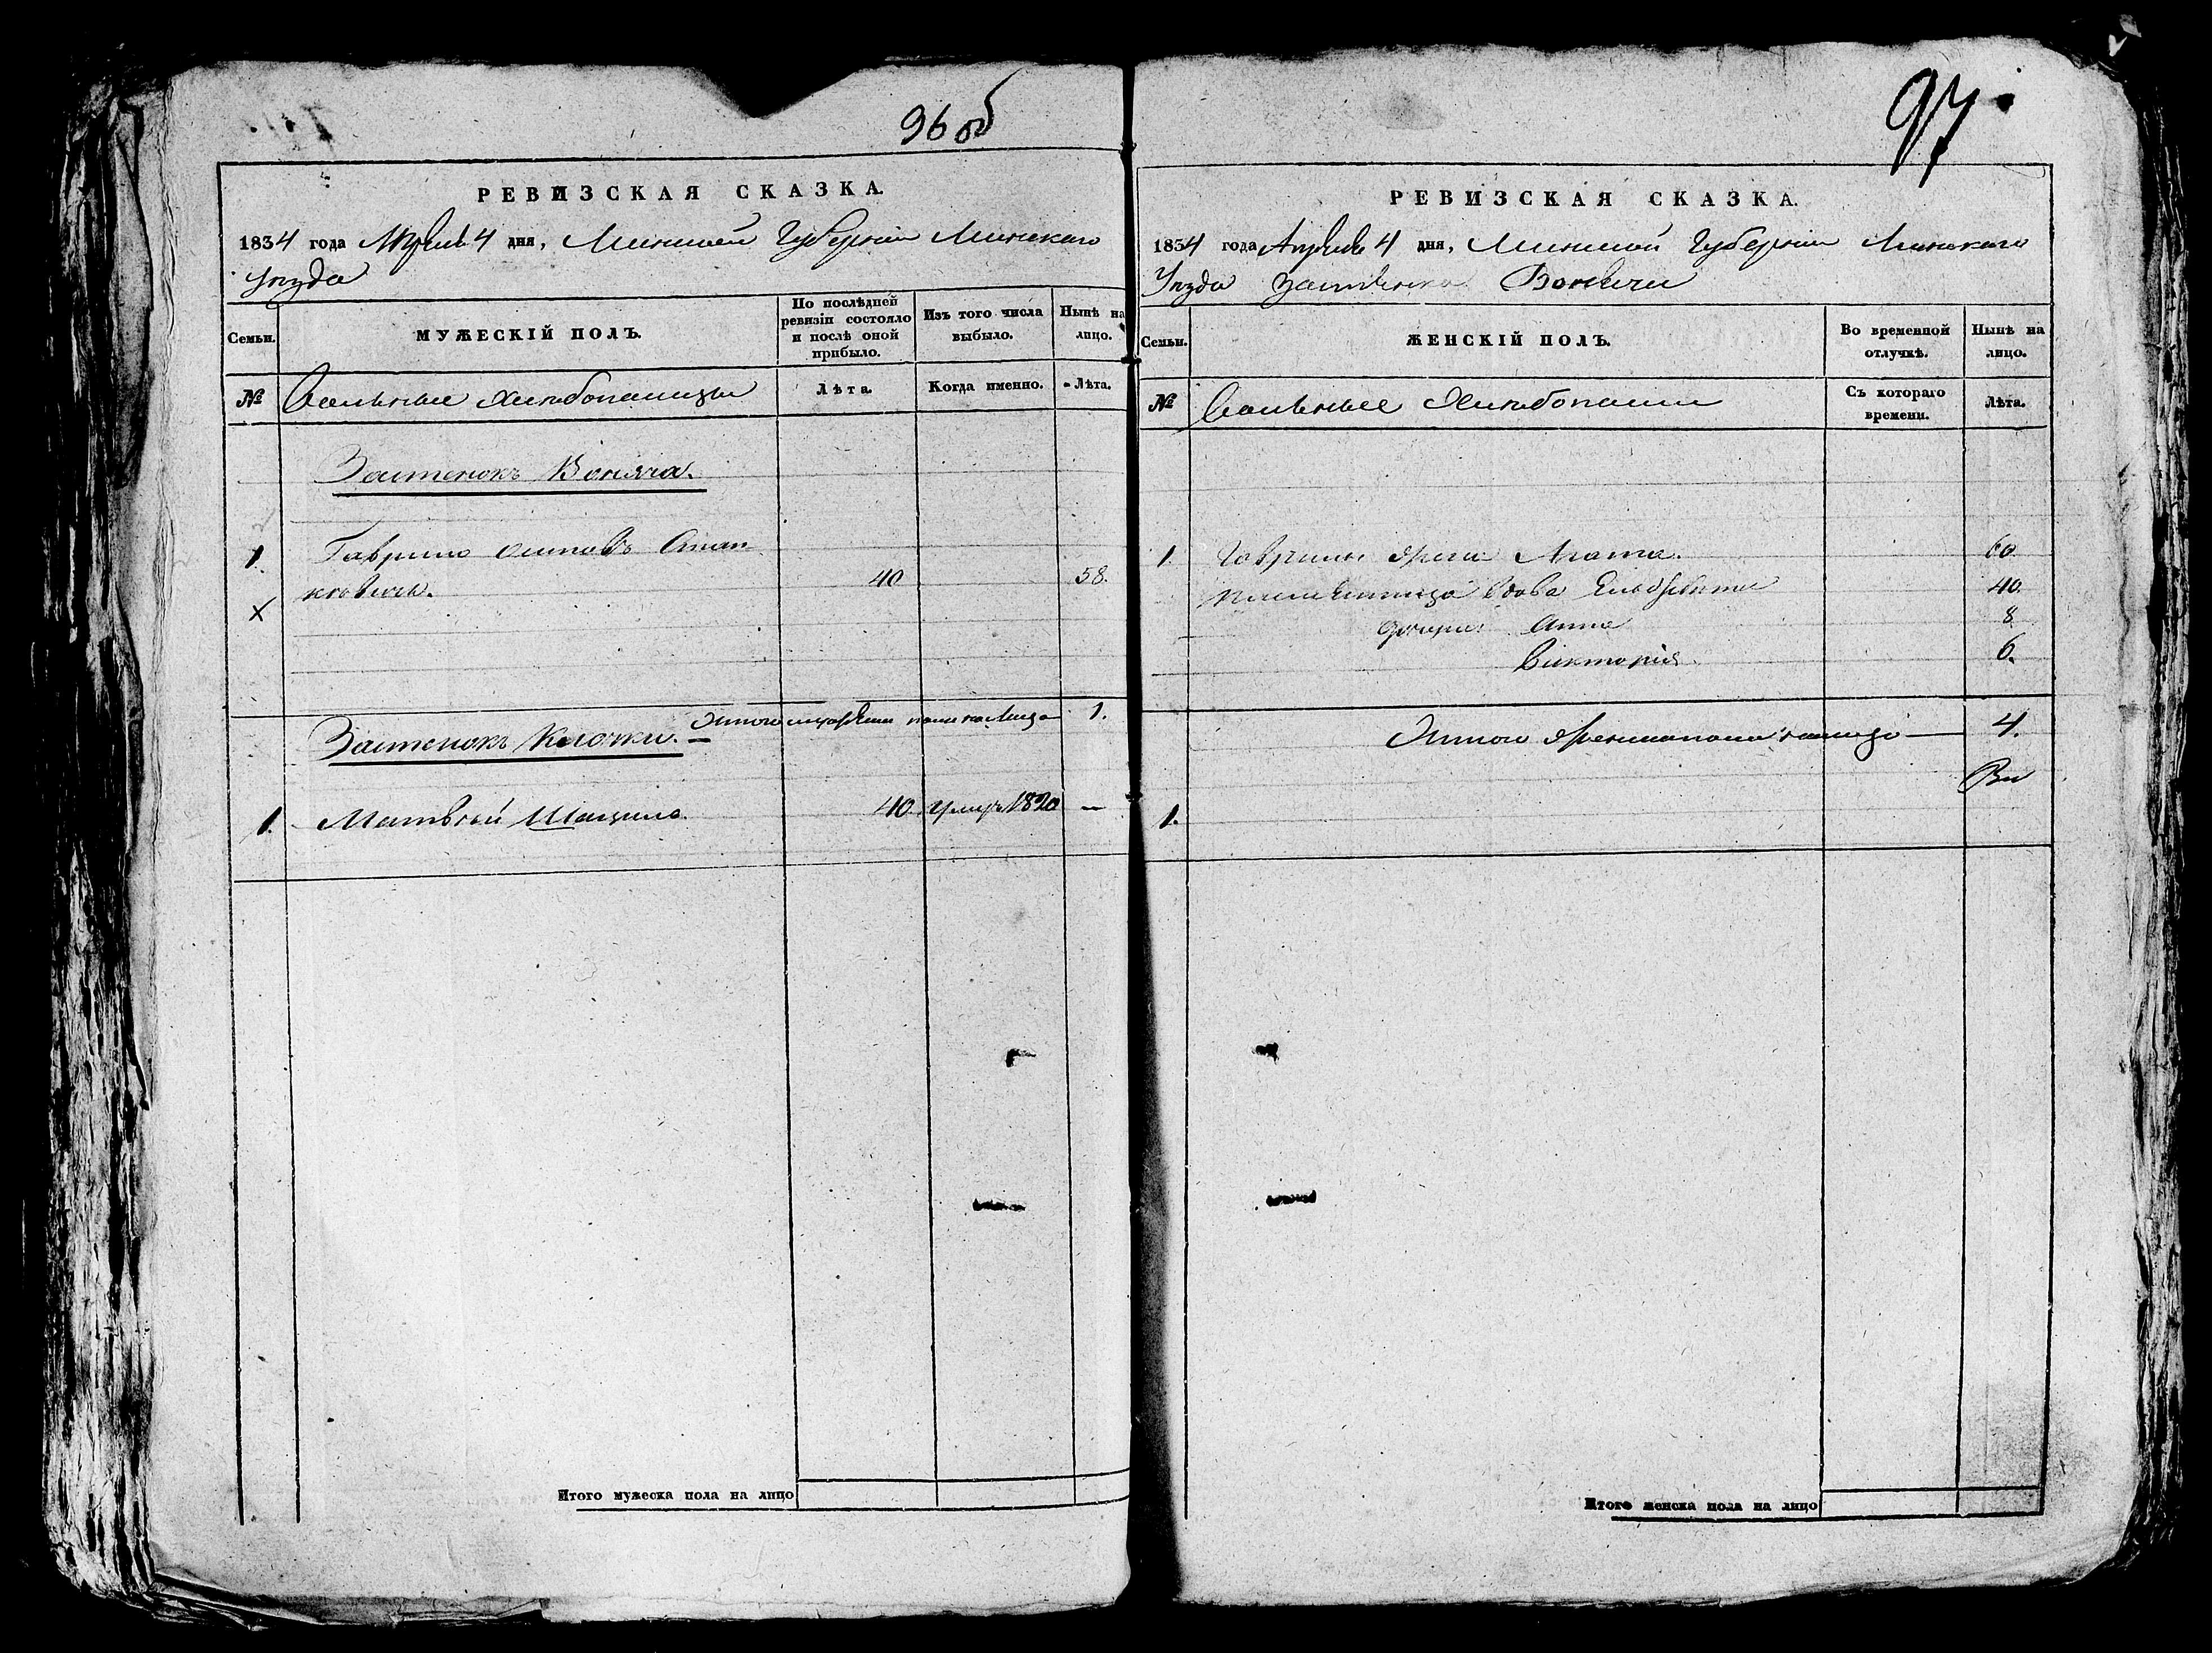 96 об
РЕВИЗСКАЯ СКАЗКА.
1834 года Апреля 4 дня, Минской Губернии Минскаго
Уезда
Семьи.
МУЖЕСКІЙ ПОЛЪ.
По послѣдней ревизіи состояло и послѣ оной прибыло.
Изъ того числа выбыло.
Нынѣ на лицо.
№
Вольные Хлебопашцы
Лѣта.
Когда именно.
Лѣта.
Застенокъ Воняча.
1. Гаврило Осиповъ Стан
кѣвичъ. 40 58.
X
Итого мужеска пола на лицо 1.
Застенокъ Клочки.
1. Матвѣй Шацило. 40. умеръ 1820 —
Итого мужеска пола на лицо
97
РЕВИЗСКАЯ СКАЗКА.
1834 года Апреля 4 дня, Минской Губернии Минскаго
Уезда застенка
Семьи.
ЖЕНСКІЙ ПОЛЪ.
Во временной отлучкѣ.
Нынѣ на лицо.
№
Вольные Хлебопаш
Съ котораго времени.
Лѣта.
1. Гаврилы жена Агата. 60
вдова Ельжбета 40.
дочери Анна 8
Викторія 6.
Итого женска пола на лицо — 4.
1.
Итого женска пола на лицо